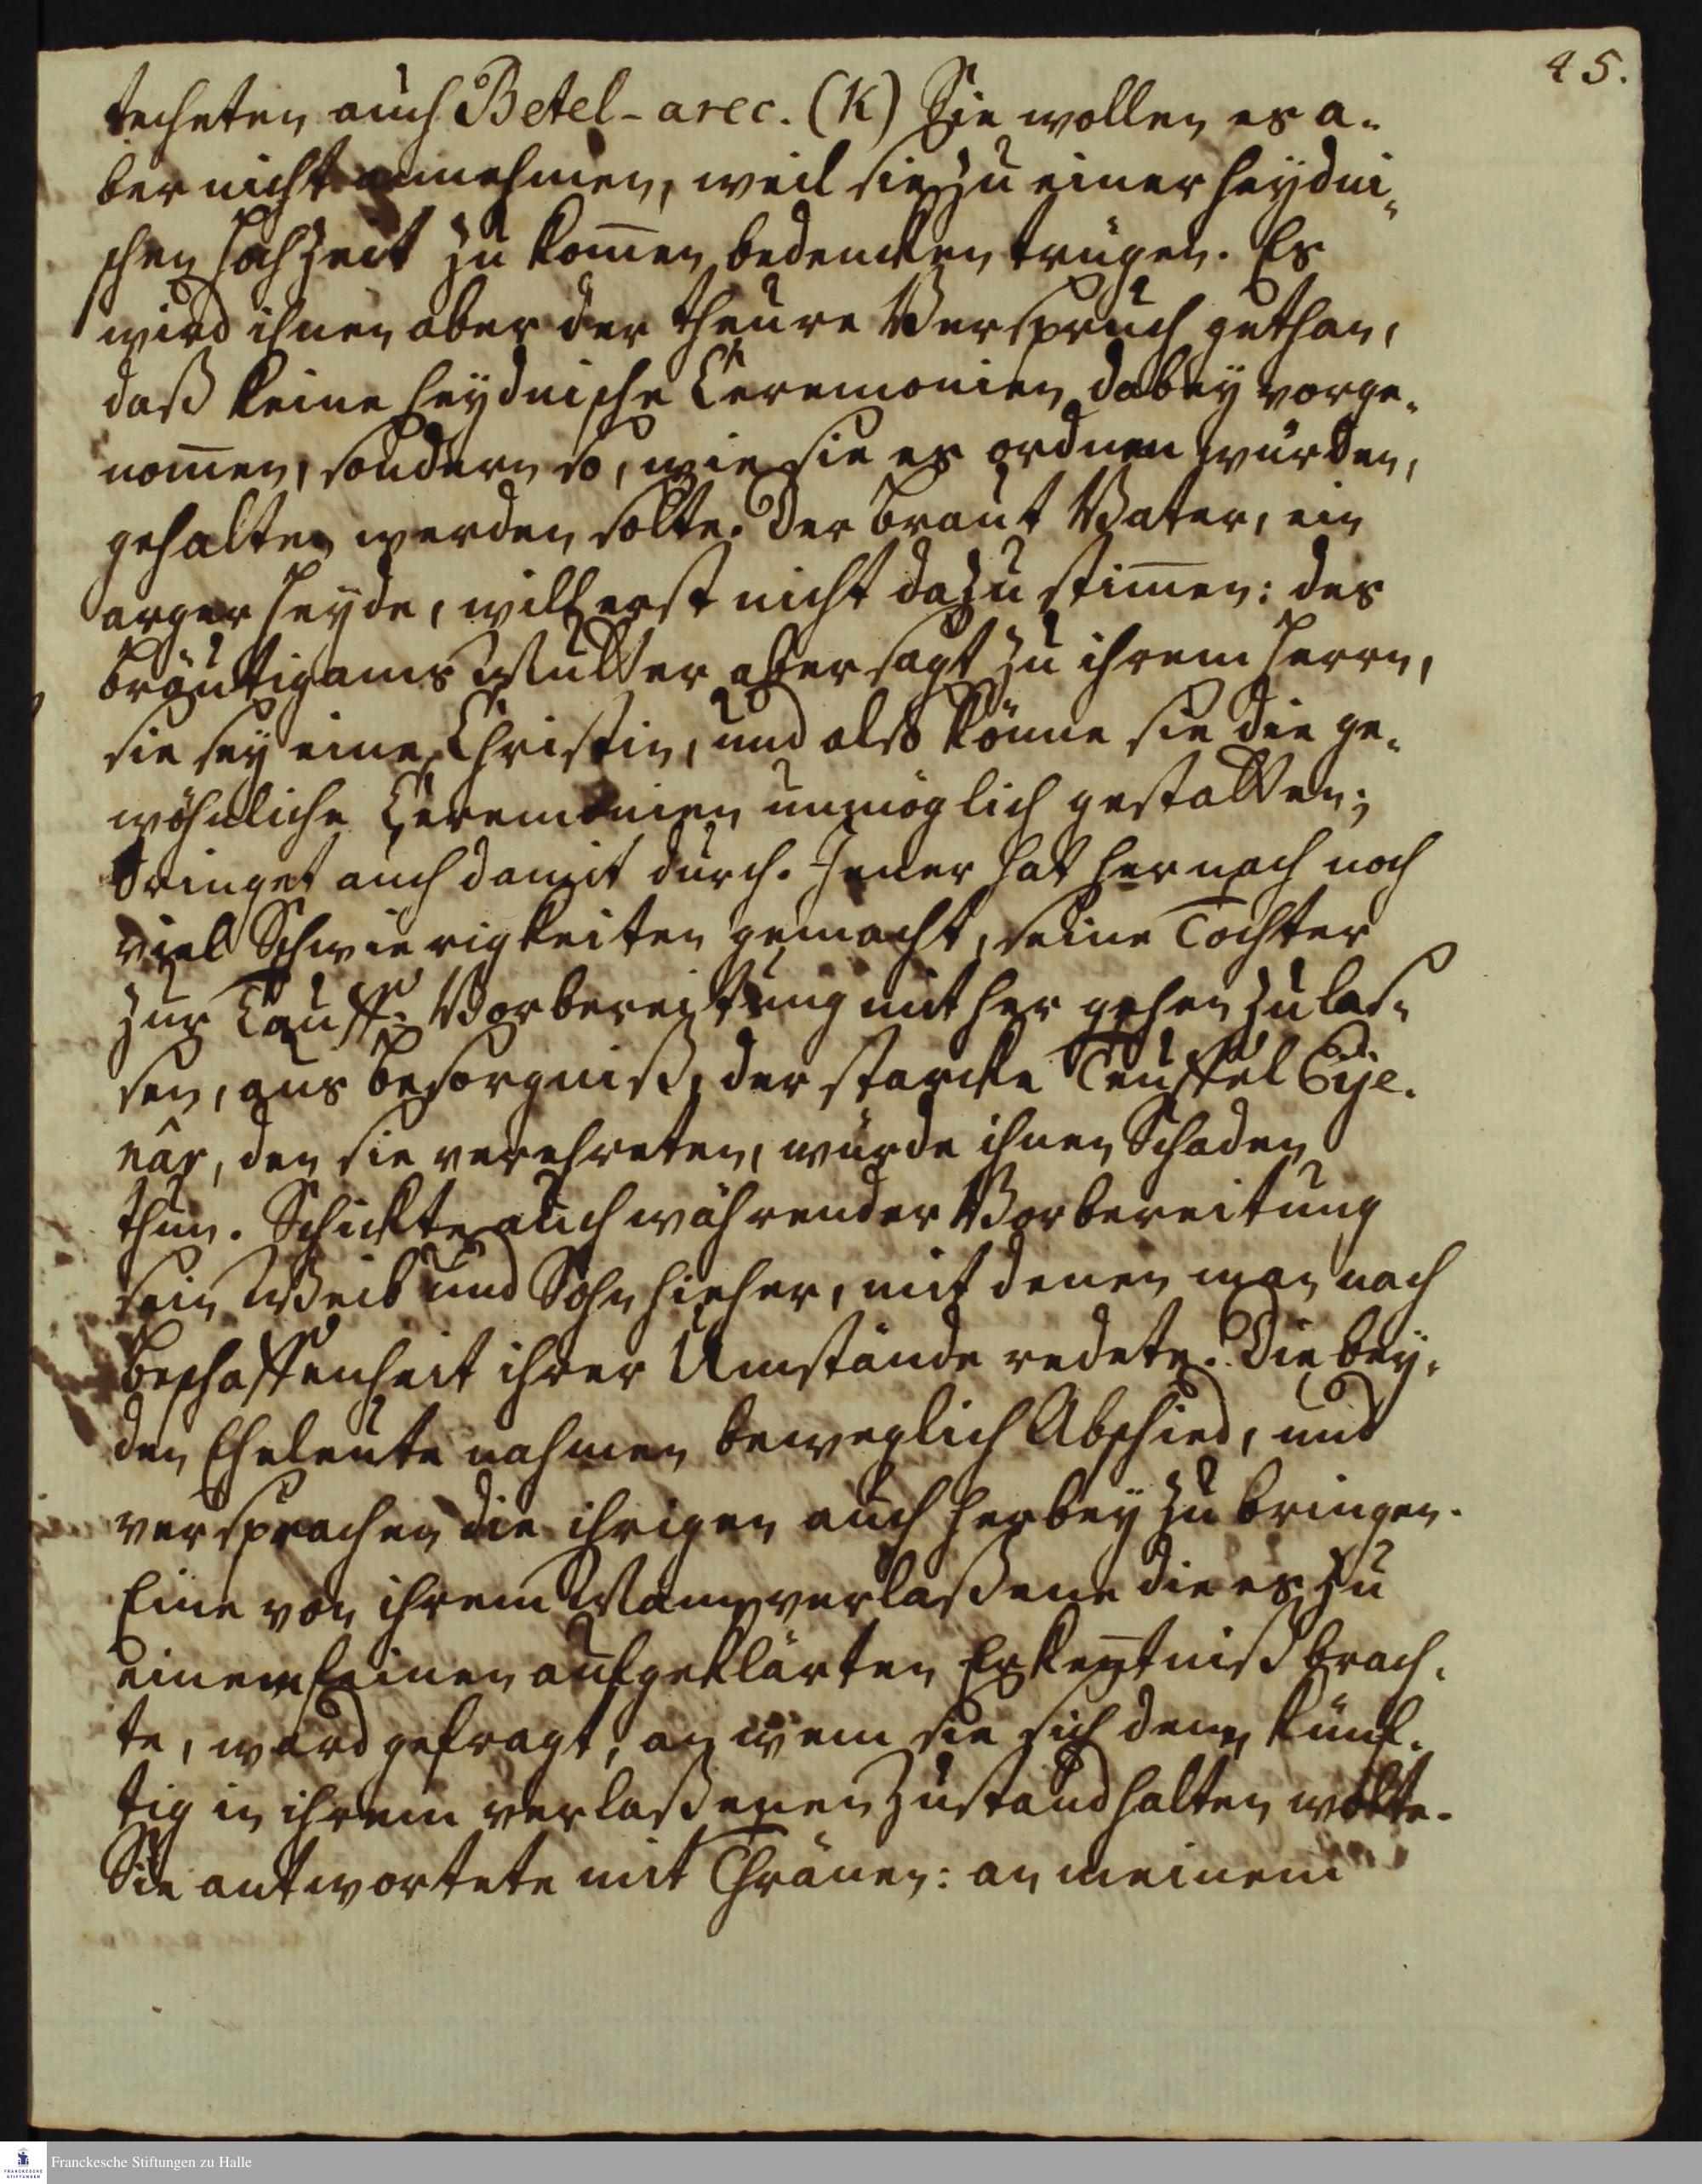 45.
techeten auch Betel-arec. (K) Sie wollen es a-
ber nicht annehmen, weil sie zu einer heydni-
schen Hochzeit zu kom̄en bedencken trügen. Es
wird ihnen aber der theure Verspruch gethan,
daß keine heydnische Ceremonien dabey vorge-
nom̄en, sondern so, wie sie es ordnen würden,
gehalten werden solte. Der Braut Vater, ein
arger Heyde, will erst nicht dazu stim̄en: des
Bräutigams Mutter aber sagt zu ihrem Herrn,
sie sey eine Christin, und also könne sie die ge-
wöhnliche Ceremonien unmöglich gestatten;
dringet auch damit durch. Jener hat hernach noch
viel Schwierigkeiten gemacht, seine Tochter
zur Tauff-Vorbereitung mit her gehen zu las-
sen, aus Besorgniß, der starcke Teuffel Eije-
nâr, den sie verehreten, würde ihnen Schaden
thun. Schickte auch währender Vorbereitung
sein Weib und Sohn hieher, mit denen man nach
Beschaffenheit ihrer Umstände redete. Die bey-
den Eheleute nahmen beweglich Abschied, und
versprachen die ihrigen auch herbey zu bringen.
Eine von ihrem Mann verlaßene die es zu
einem feinen aufgeklärten Erkentniß brach-
te, ward gefragt, an wem sie sich denn künf-
tig in ihrem verlaßenen Zustand halten wolte.
Sie antwortete mit Thränen: an meinem
Franckesche Stiftungen zu Halle
FRANCKESCHE
STIFTUNGEN